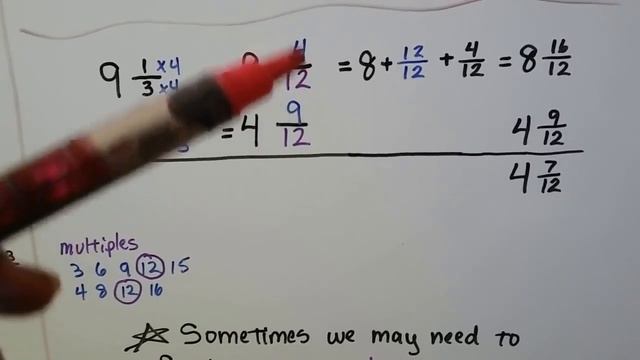 9 1/3 ×4 ×4 4/12 = 8 + 12/12 + 4/12 = 8 16/12
= 4 9/12 4 9/12
4 7/12
multiples
3 6 9 12 15
4 8 12 16
☆ Sometimes we may need to